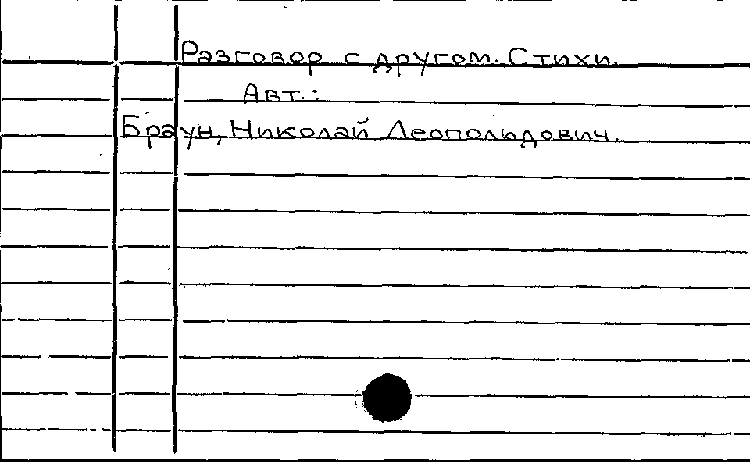 Разговор с другом. Стихи.
Авт.:
Браун, Николай Леопольдович.